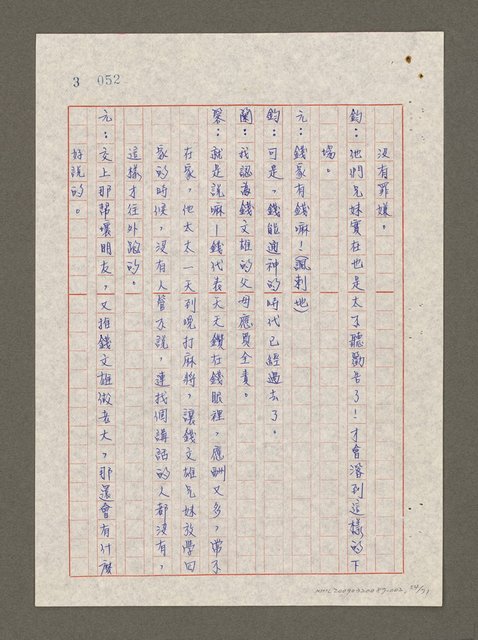 3 052
沒有罪嫌。
鈞：他們兄妹實在也是太不聽勸告了！才會落到這樣的下
場。
元：錢家有錢嘛！（諷刺地）
鈞：可是，錢能通神的時代已經過去了。
蘭：我認為錢文雄的父母應負全責。
眾：就是說嘛！錢代表天天鑽在錢眼裡，應酬又多，常不
在家，他太太一天到晚打麻將，讓錢文雄兄妹放學回
家的時候，沒有人管不說，連找個講話的人都沒有，
這樣才往外跑的。
元：交上那幫壞朋友，又推錢文雄做老大，那還會有什麼
好說的。